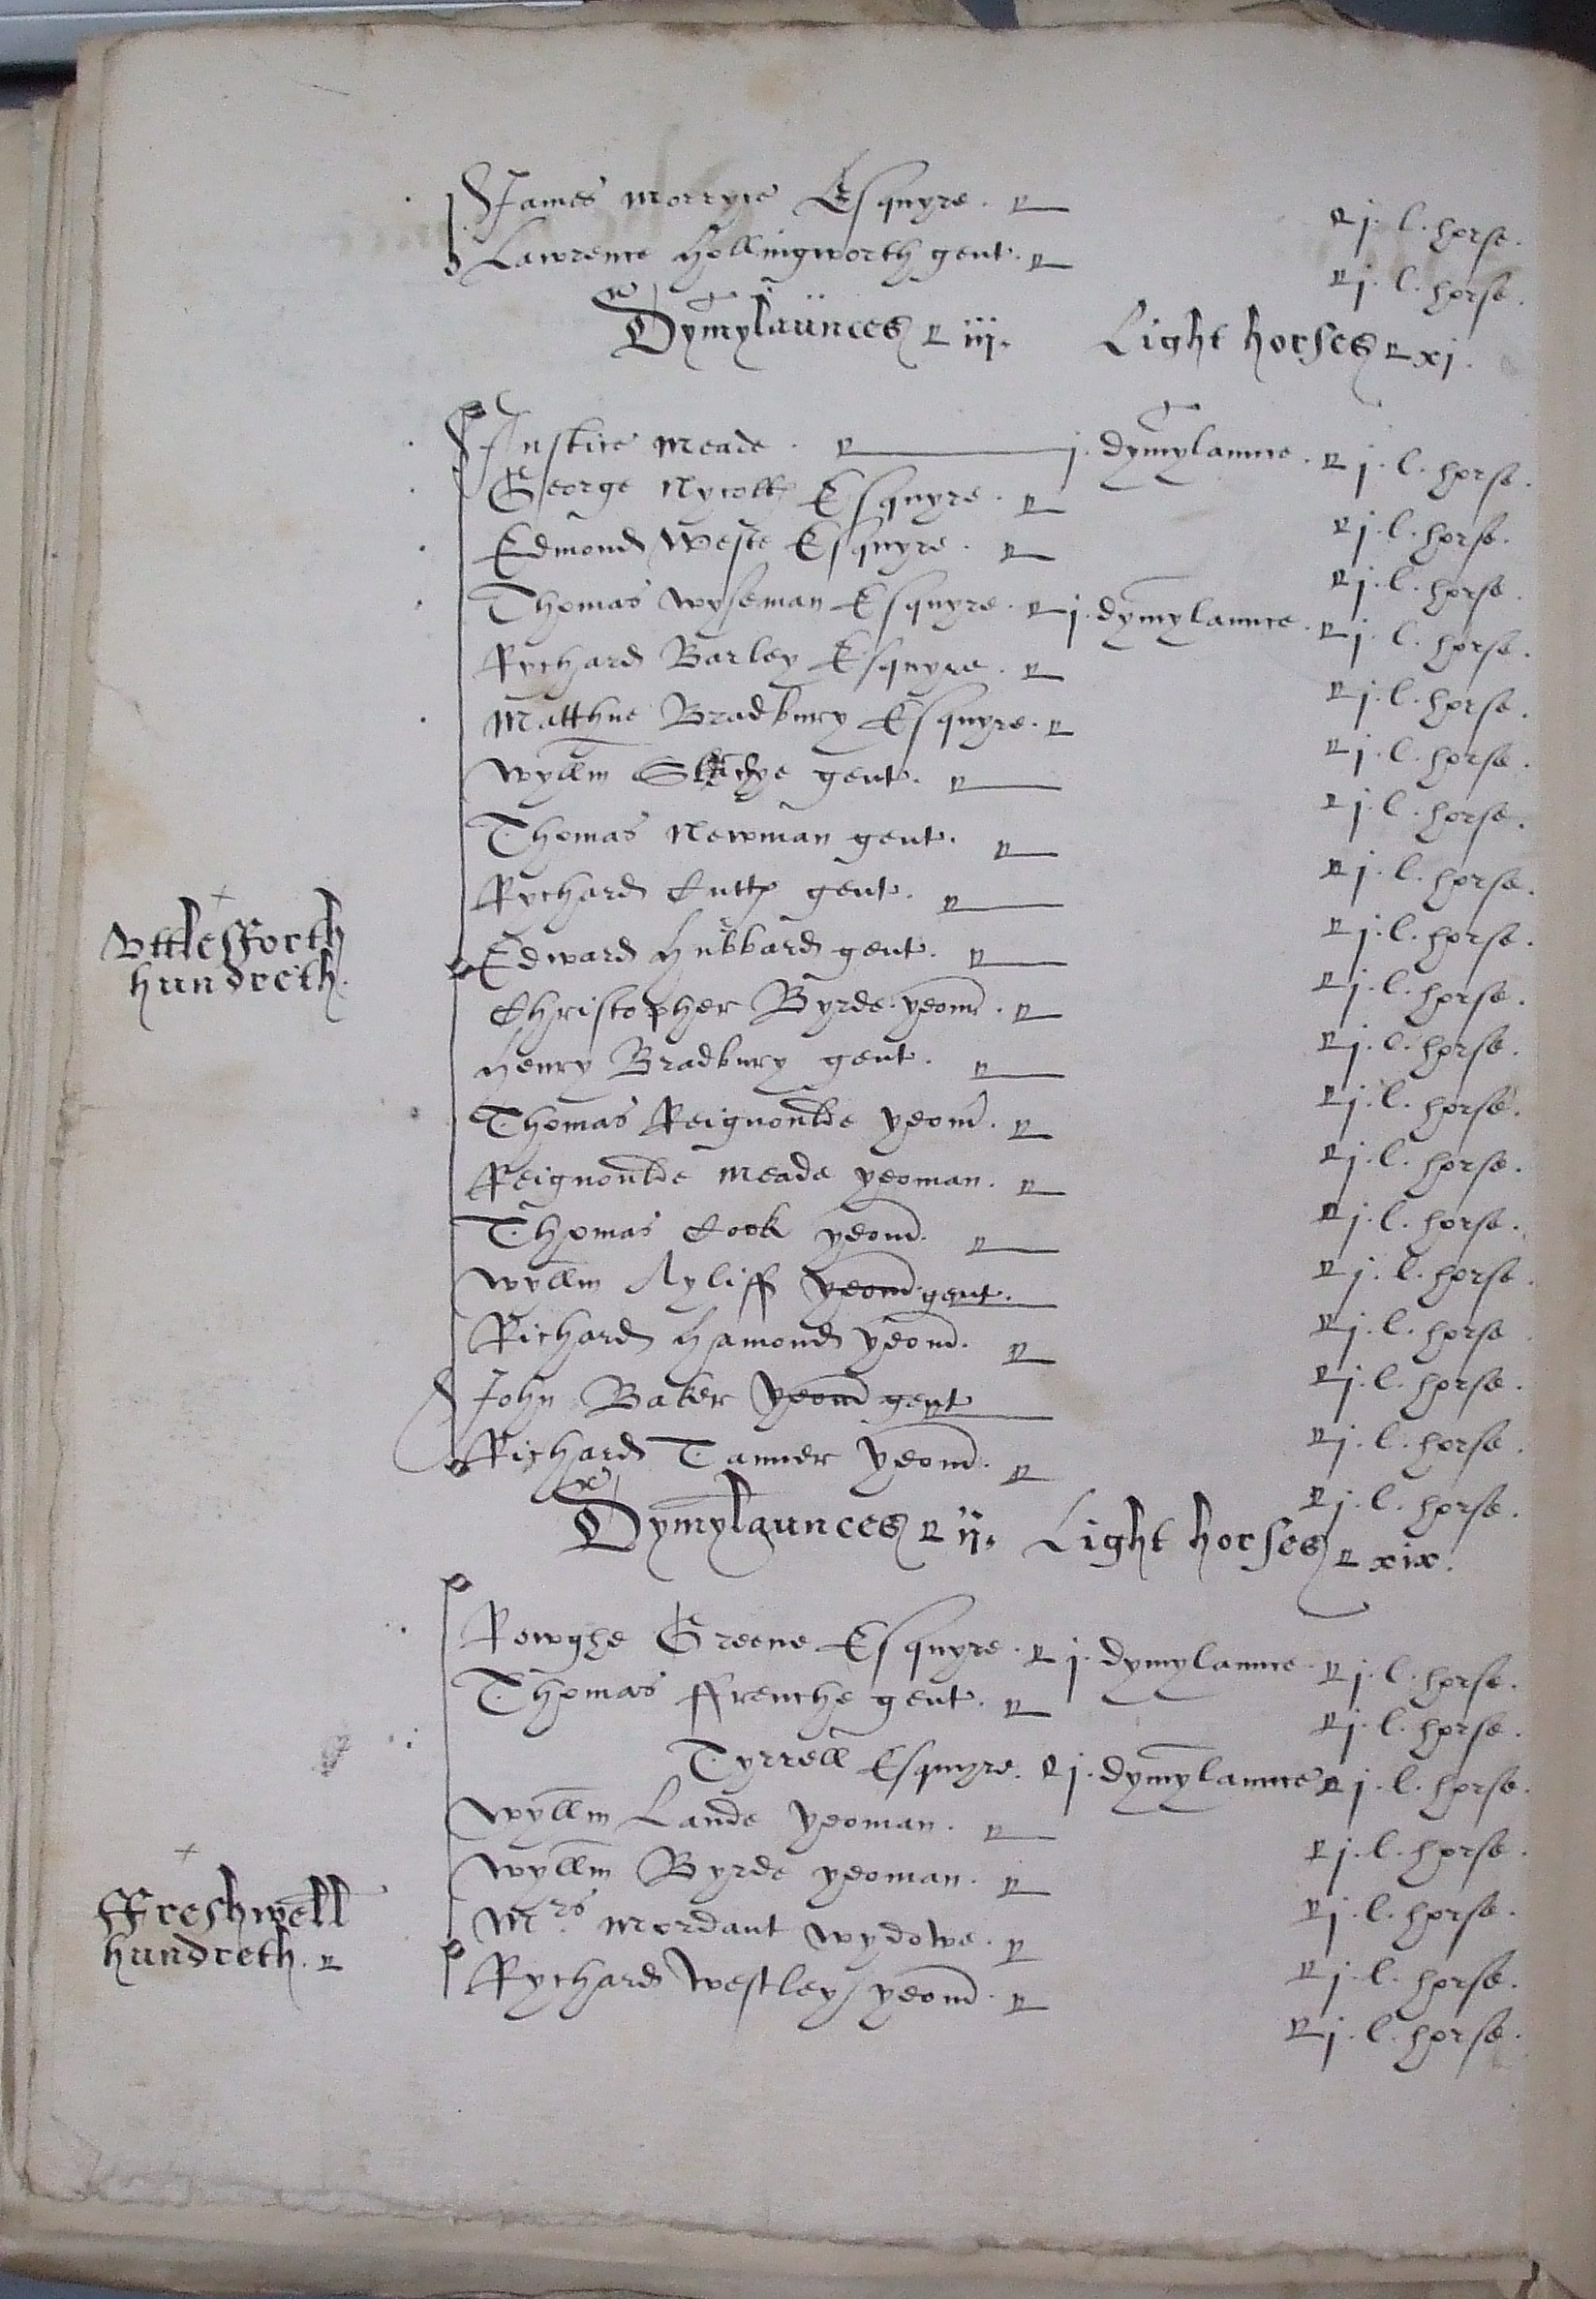 James Morryce Esquyre. j. l. horse.
Lawrence Hollingworth gent. j. l. horse.
Dymylaunces iij. Light horses xj.
Justice Meade. j. dymylaunce. j. l. horse.
George Nycolls Esquyre. j. l. horse.
Edmond Weste Esquyre. j. l. horse.
Thomas Wyseman Esquyre. j. dymylaunce. j. l. horse.
Rychard Barley Esquyre. j. l. horse.
Matthue Bradbury Esquyre. j. l. horse.
Wyllm gent. j. l. horse.
Thomas Newman gent. j. l. horse.
Rychard Cutts gent. j. l. horse.
Vttlesfforth
hundreth.
Edward Hubbard gent. j. l. horse.
Christopher Byrde yeom. j. l. horse.
Henry Bradbury gent. j. l. horse.
Thomas Reignoulde yeom. j. l. horse.
Reignoulde Meade yeoman. j. l. horse.
Thomas Cook yeom. j. l. horse.
Wyllm Ayliff yeom gent. j. l. horse.
Richard Hamond yeom. j. l. horse.
John Baker yeom gent j. l. horse.
Richard Tanner yeom. j. l. horse.
Dymylaunces ij. Light horses xix.
Rowghe Greene Esquyre. j. dymylaunce. j. l. horse.
Thomas ffrenche gent. j. l. horse.
Tyrrell Esquyre. j. dymylaunce j. l. horse.
Wyllm Lande yeoman. j. l. horse.
Wyllm Byrde yeoman. j. l. horse.
ffreshwell
hundreth.
Mrs Mordant wydowe. j. l. horse.
Rychard Westley yeom. j. l. horse.